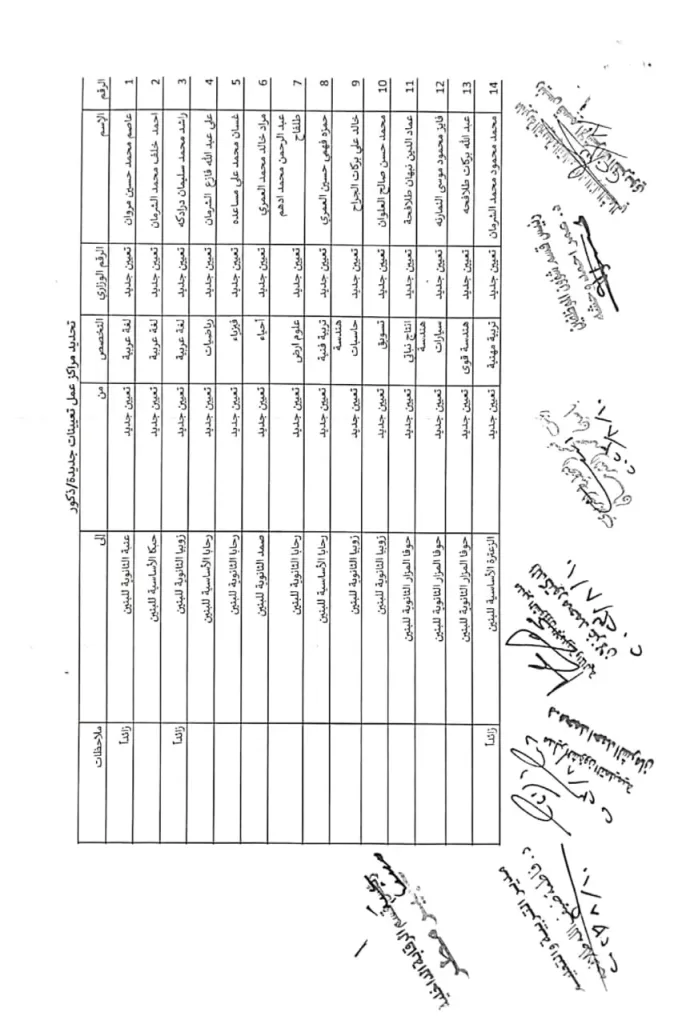 تحديد مراكز عمل تعيينات جديدة/ذكور
الرقم الإسم الرقم الوزاري التخصص من إلى ملاحظات
1 عاصم محمد حسين مروان تعيين جديد لغة عربية تعيين جديد عنبة الثانوية للبنين زائداً
2 احمد خلف محمد الشرمان تعيين جديد لغة عربية تعيين جديد حبكا الأساسية للبنين
3 راشد محمد سليمان درادكه تعيين جديد لغة عربية تعيين جديد زوبيا الثانوية للبنين زائداً
4 علي عبد الله فازع الشرمان تعيين جديد رياضيات تعيين جديد رحابا الأساسية للبنين
5 غسان محمد علي مساعده تعيين جديد فيزياء تعيين جديد رحابا الثانوية للبنين
6 مراد خالد محمد العمري تعيين جديد أحياء تعيين جديد صمد الثانوية للبنين
7 عبد الرحمن محمد ادهم طلفاح تعيين جديد علوم ارض تعيين جديد رحابا الثانوية للبنين
8 حمزه فهمي حسين العمري تعيين جديد تربية فنية تعيين جديد رحابا الأساسية للبنين
9 خالد علي بركات الجراح تعيين جديد هندسة حاسبات تعيين جديد زوبيا الثانوية للبنين
10 محمد حسن صالح العلوان تعيين جديد تسويق تعيين جديد زوبيا الثانوية للبنين
11 عماد الدين نبهان طلافحة تعيين جديد انتاج نباتي تعيين جديد حوفا المزار الثانوية للبنين
12 فايز محمود موسى النمارنه تعيين جديد هندسة سيارات تعيين جديد حوفا المزار الثانوية للبنين
13 عبد الله بركات طلافحه تعيين جديد هندسة قوى تعيين جديد حوفا المزار الثانوية للبنين
14 محمد محمود محمد الشرمان تعيين جديد تربية مهنية تعيين جديد الزعترة الأساسية للبنين زائداً
رئيس قسم شؤون الموظفين
د. محمد احمد الشرمان
مدير الشؤون التعليمية
مدير التربية والتعليم
قسم الرقابة الداخلية